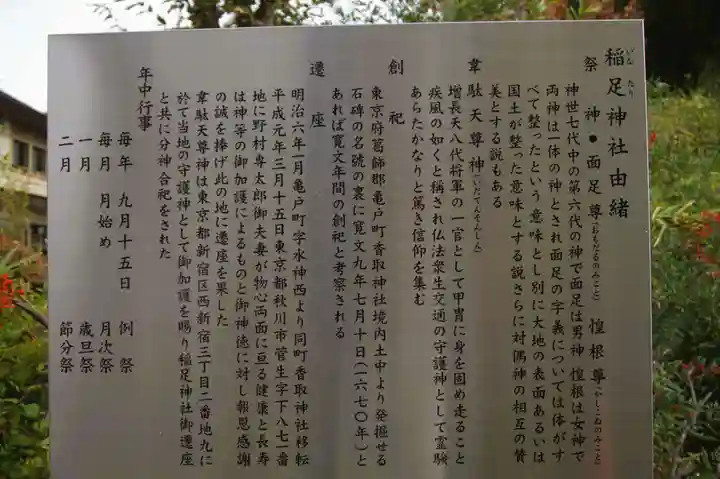 稲足神社由緒
いな たり
祭 神●面足尊(おもだるのみこと) 惶根尊(かしこねのみこと)
神世七代中の第六代の神で面足は男神 惶根は女神で
両神は一体の神とされ面足の字義については体がす
べて整ったという意味とし別に大地の表面あるいは
国土が整った意味とする説さらに対偶神の相互の賛
美とする説もある
韋駄天尊神(いだてんそんしん)
増長天八代将軍の一官として甲冑に身を固め走ること
疾風の如くと称され仏法衆生交通の守護神として霊験
あらたかなりと篤き信仰を集む
創 祀
東京府葛飾郡亀戸町香取神社境内土中より発掘せる
石碑の名號の裏に寛文九年七月十日(一六七〇年)と
あれば寛文年間の創祀と考察される
遷 座
明治六年一月亀戸町字水神西より同町香取神社移転
平成元年三月十五日東京都秋川市菅生字下八七一番
地に野村専太郎御夫妻が物心両面に亘る健康と長寿
は神等の御加護によるものと御神徳に対し報恩感謝
の誠を捧げ此の地に遷座を果した
韋駄天尊神は東京都新宿区西新宿三丁目二番地九に
於て当地の守護神として御加護を賜り稲足神社御遷座
と共に分神合祀をされた
年中行事
毎年 九月十五日 例祭
毎月 月始め 月次祭
一月 歳旦祭
二月 節分祭